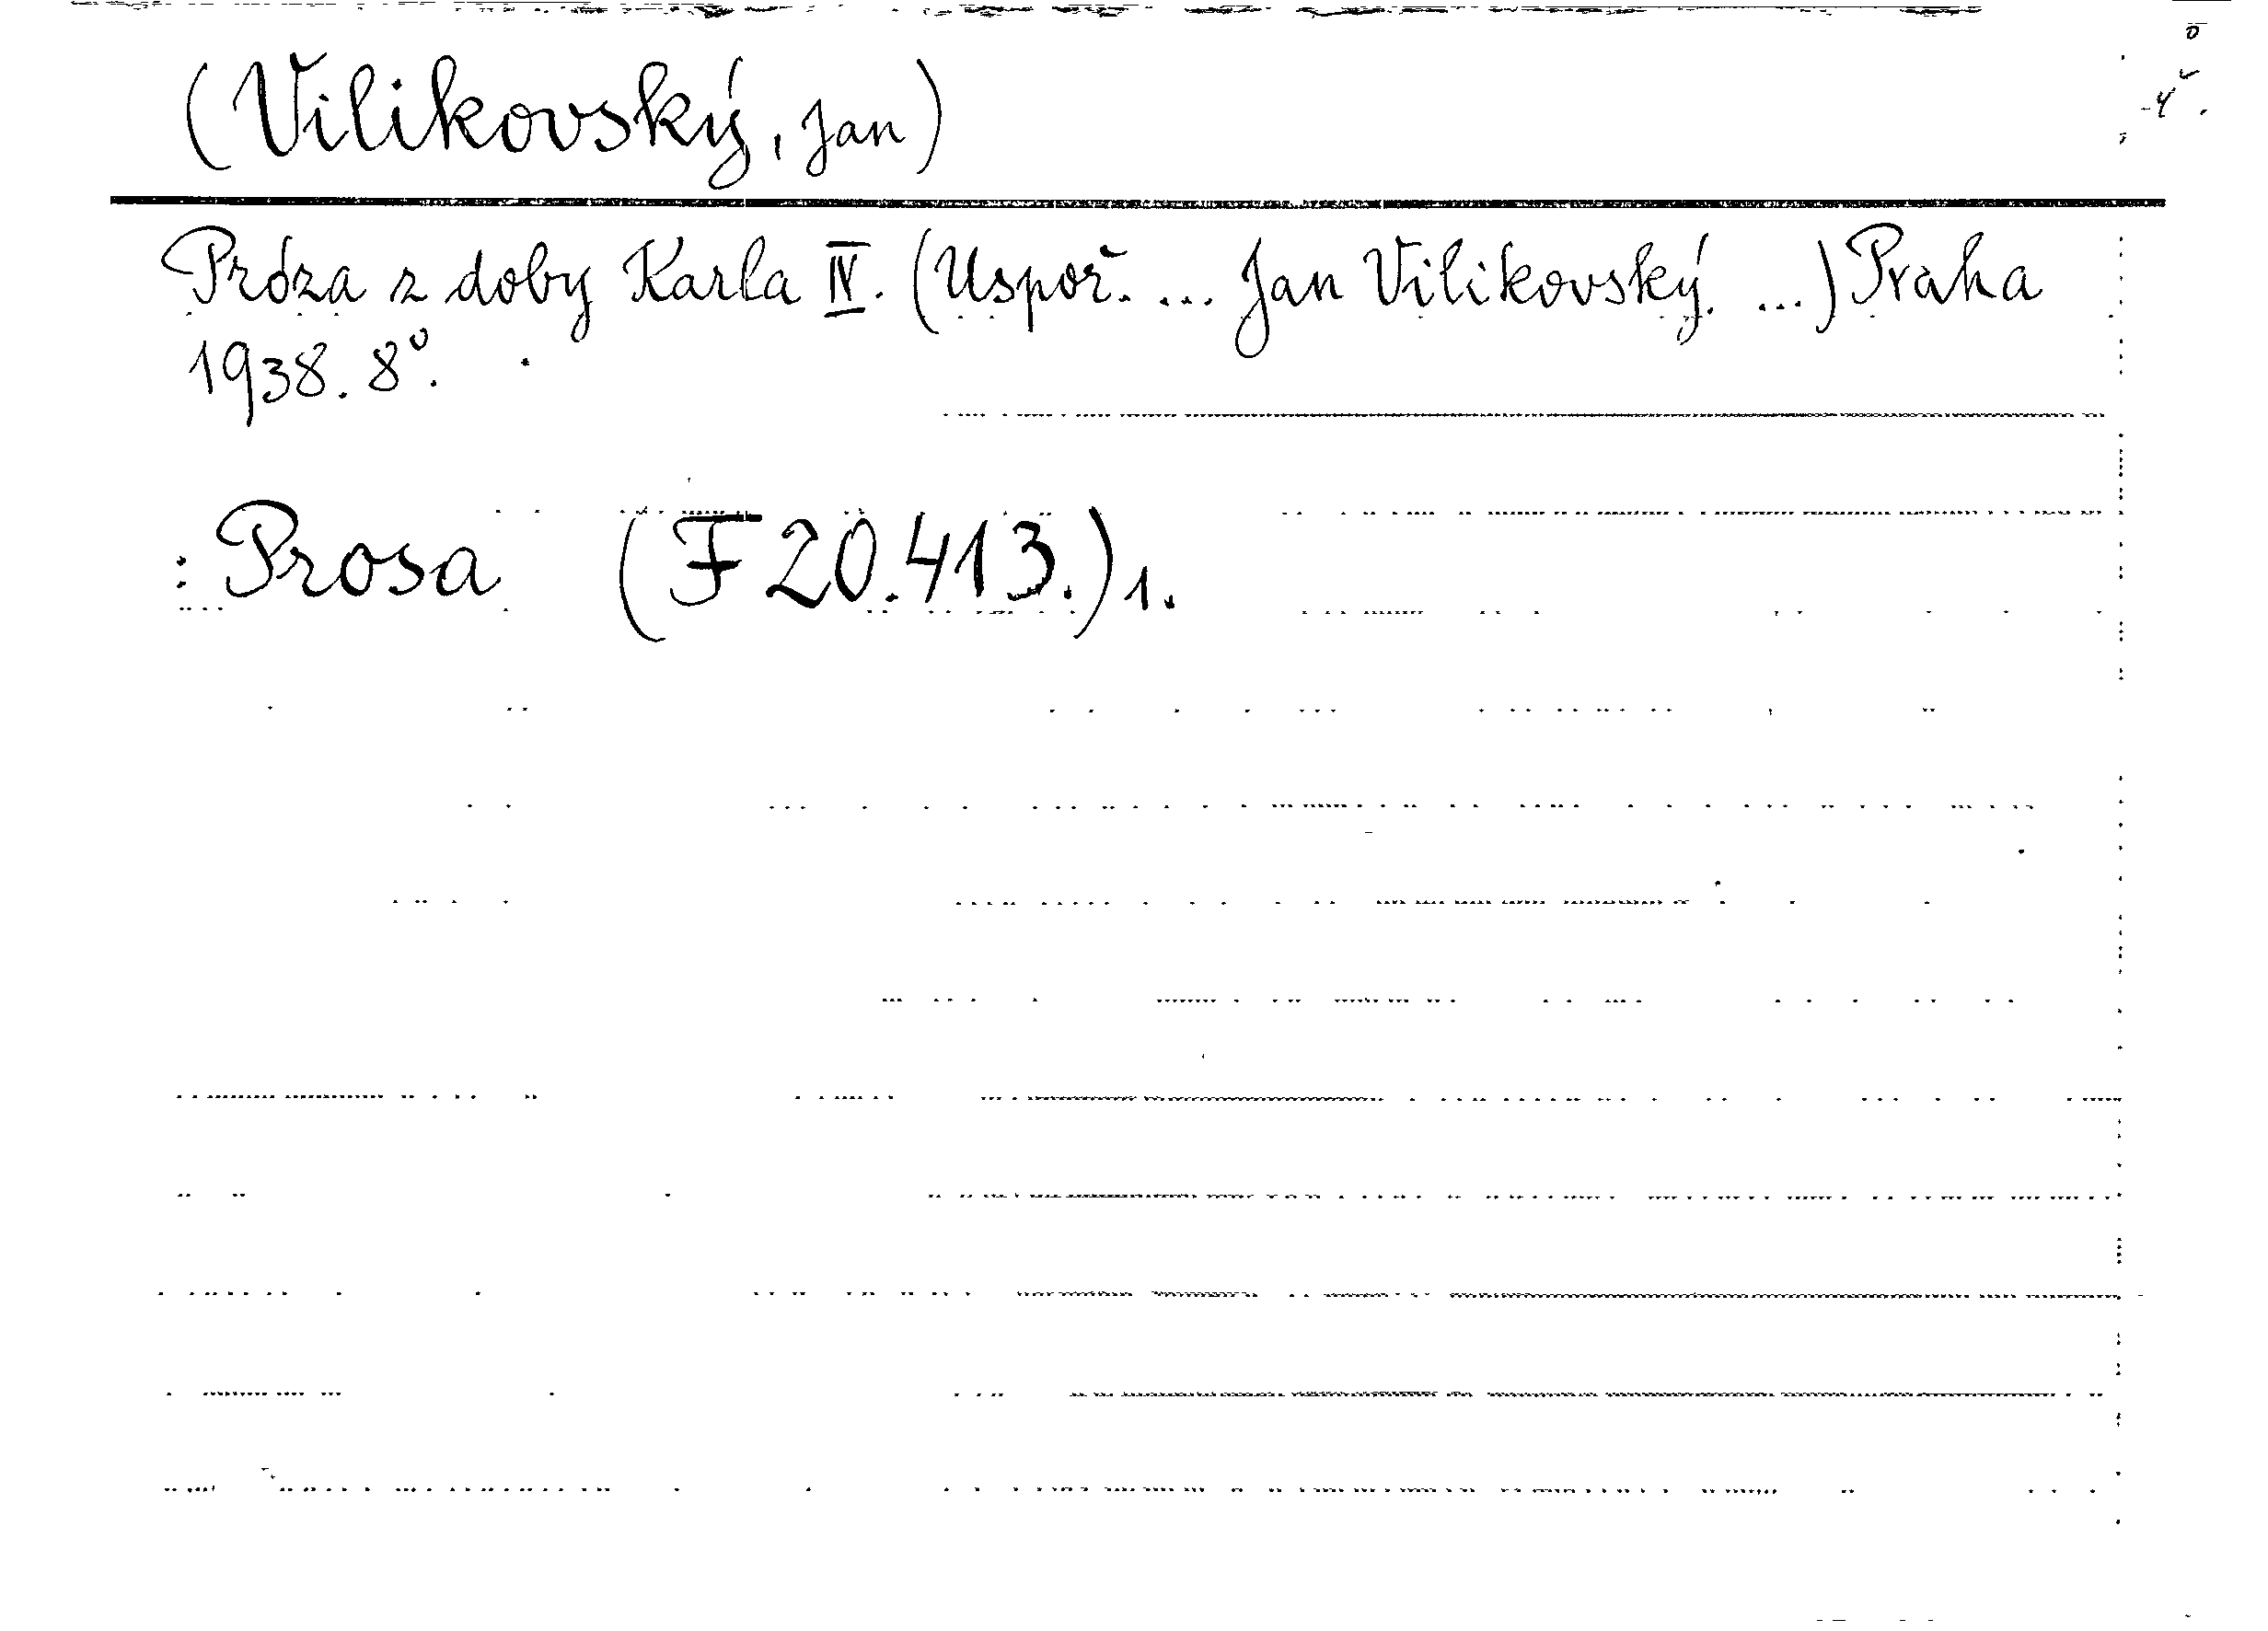 (Vilikovský, Jan)
Próza z doby Karla IV. (Uspoř. ... Jan Vilikovský. ...) Praha
1938. 8°.
: Prosa (F 20.413.) 1.